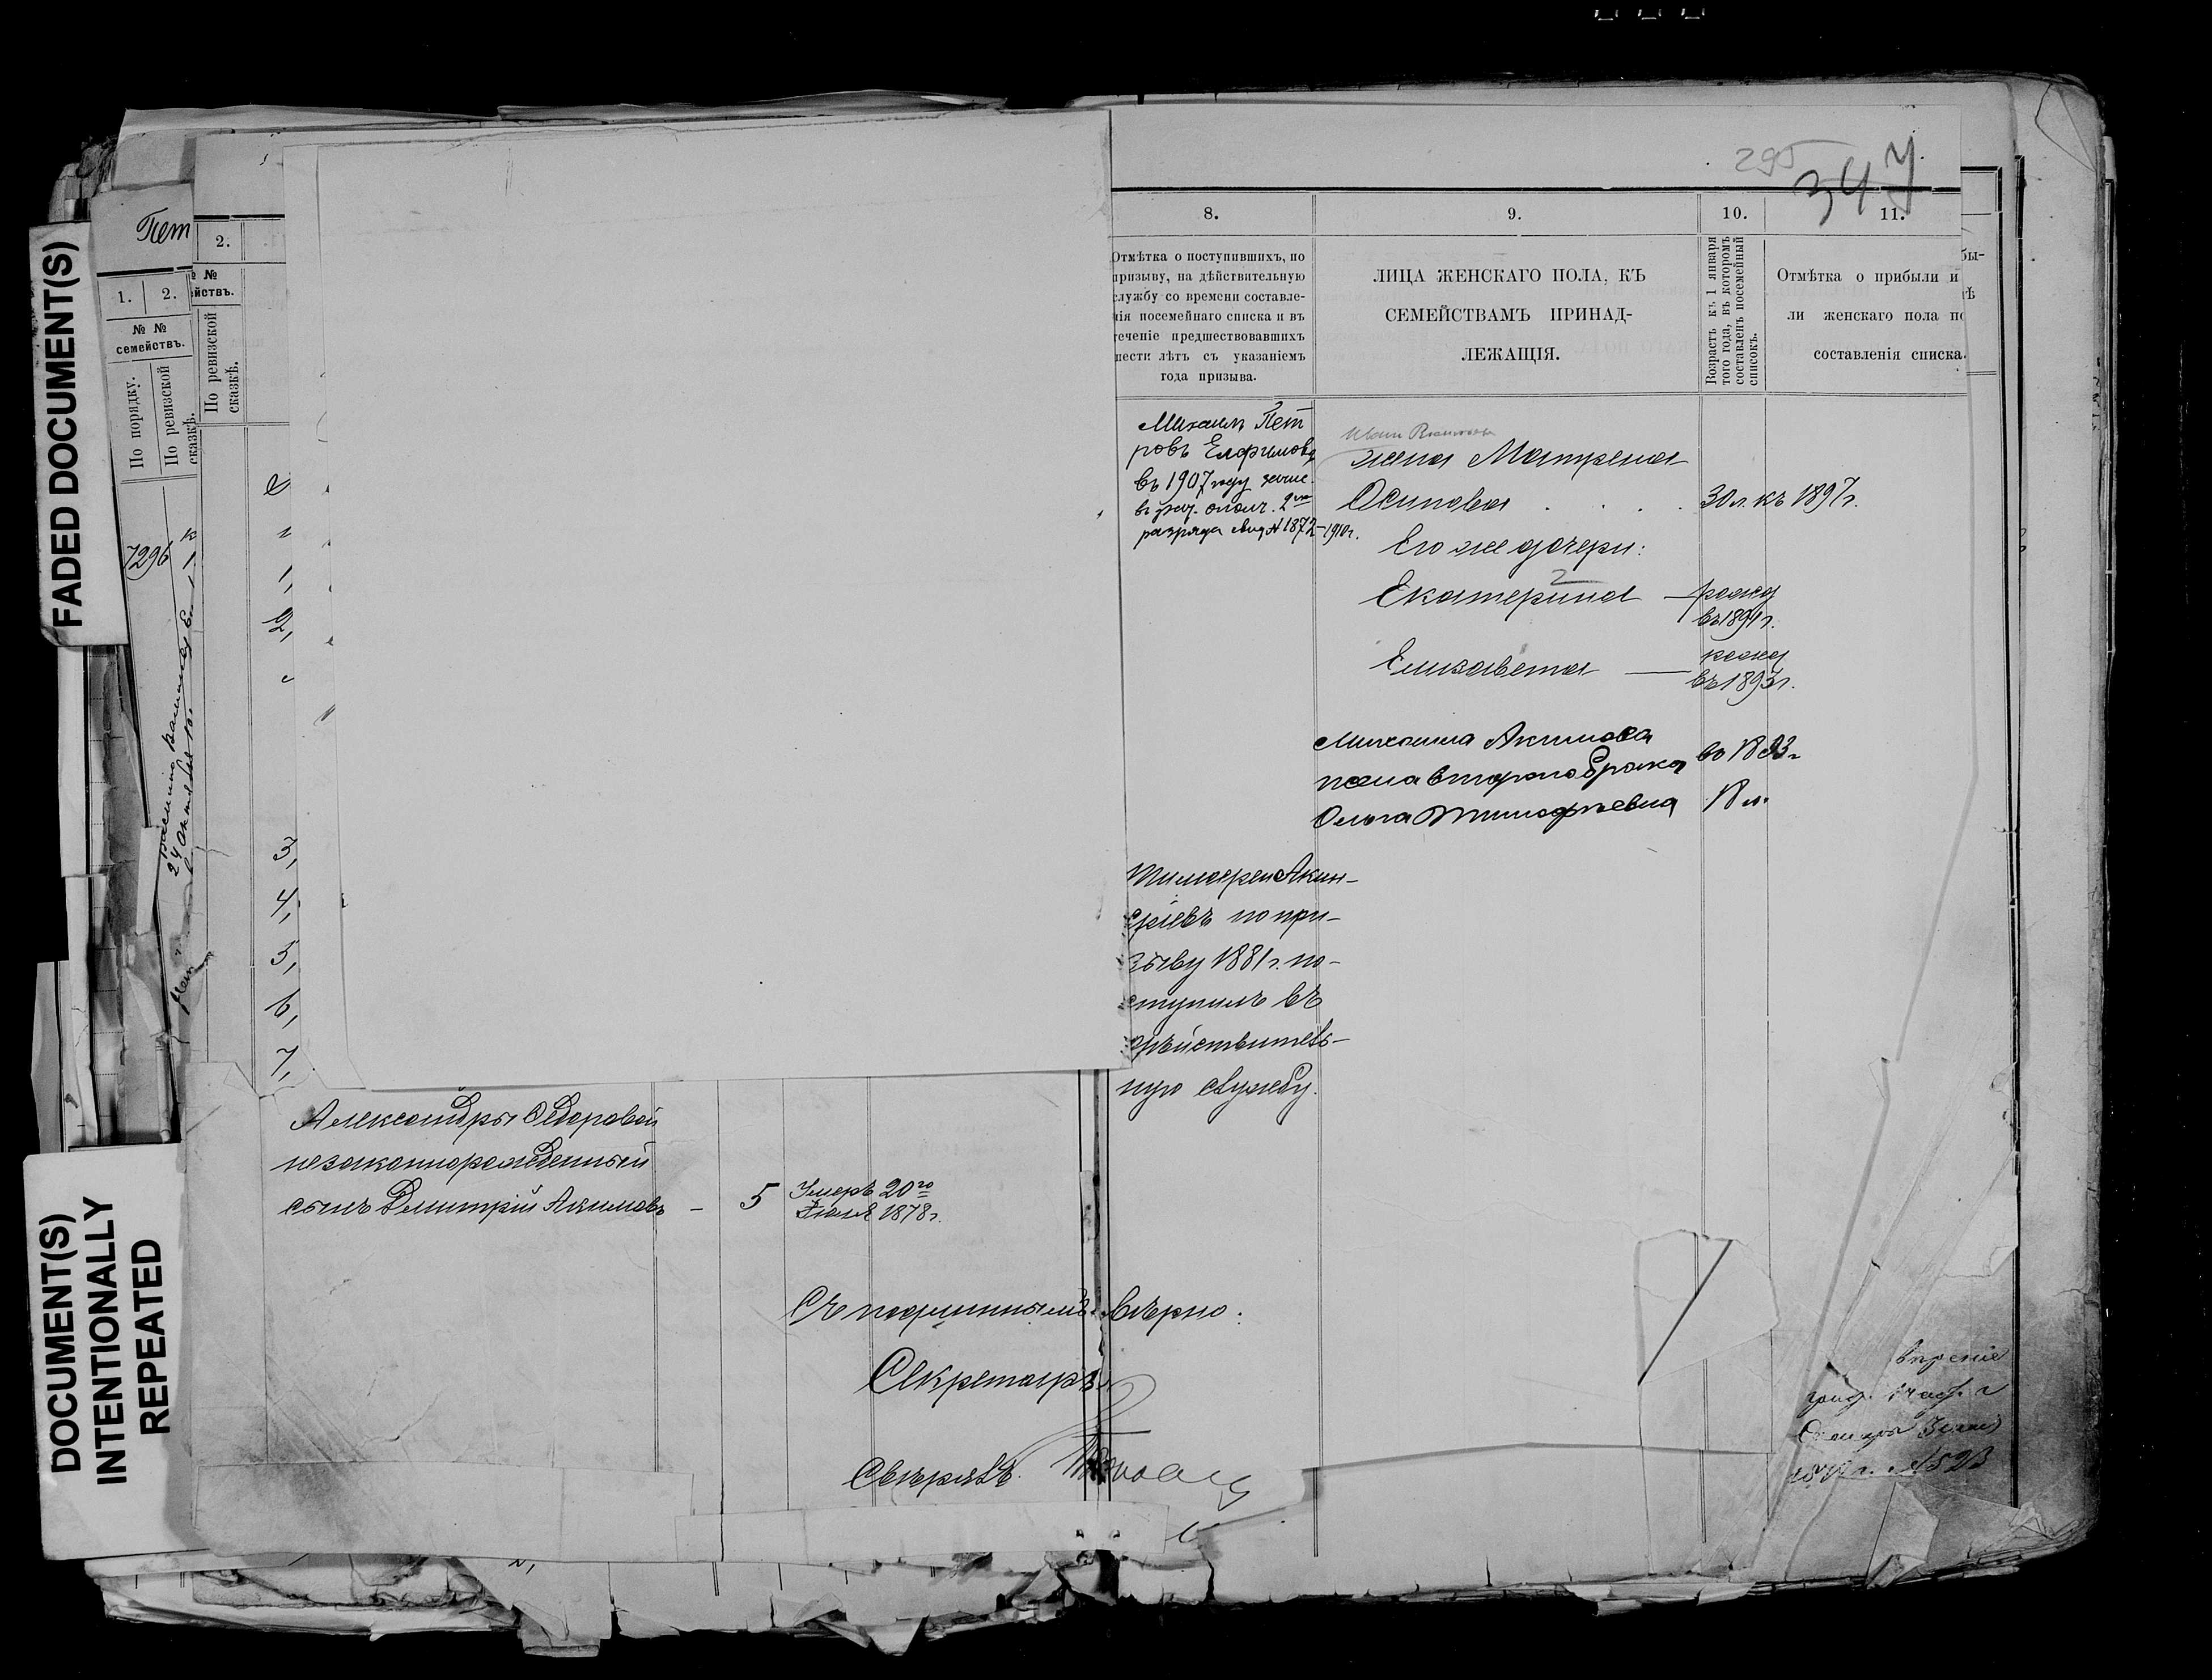 FADED DOCUMENT(S)
DOCUMENT(S)
INTENTIONALLY
REPEATED
295
347
Пет
1.
2.
№ №
семействъ.
По порядку.
По ревизской
сказкѣ.
7296
2.
№
йствъ.
По ревизской
сказкѣ.
1,
2,
3,
4,
5,
6,
7,
8.
Отмѣтка о поступившихъ, по
призыву, на дѣйствительную
службу со времени составле-
нія посемейнаго списка и въ
теченіе предшествовавшихъ
шести лѣтъ съ указаніемъ
года призыва.
9.
ЛИЦА ЖЕНСКАГО ПОЛА, КЪ
СЕМЕЙСТВАМЪ ПРИНАД-
ЛЕЖАЩІЯ.
10.
Возрастъ къ 1 января
того года, въ которомъ
составленъ посемейный
списокъ.
11.
Отмѣтка о прибыли и
ли женскаго пола по
составленія списка.
бы-
ѣ
Михаилъ Пет
ровъ Ефимовъ
въ 1907 году зачис.
въ рат. ополч. 2го
разряда свид № 1872-1910г.
жена Матрена
Осипова . . . 30 л. къ 1897г.
Его же дочери:
2
Екатерина — рожд
въ 1891г.
Елизавета — рожд
въ 1895г.
Михаила Акимова
жена втораго брака въ 1883г
Ольга Тимофѣевна 18 л.
Тимофей Акин-
фіевъ по при-
зыву 1881г. по-
ступилъ въ
дѣйствитель-
ную службу.
Александры Федоровой
незаконнорожденный
сынъ Дмитрій Акимовъ — 5 Умеръ 20го
Іюля 1878г.
Съ подлиннымъ вѣрно:
Секретарь
Свѣрялъ
№523